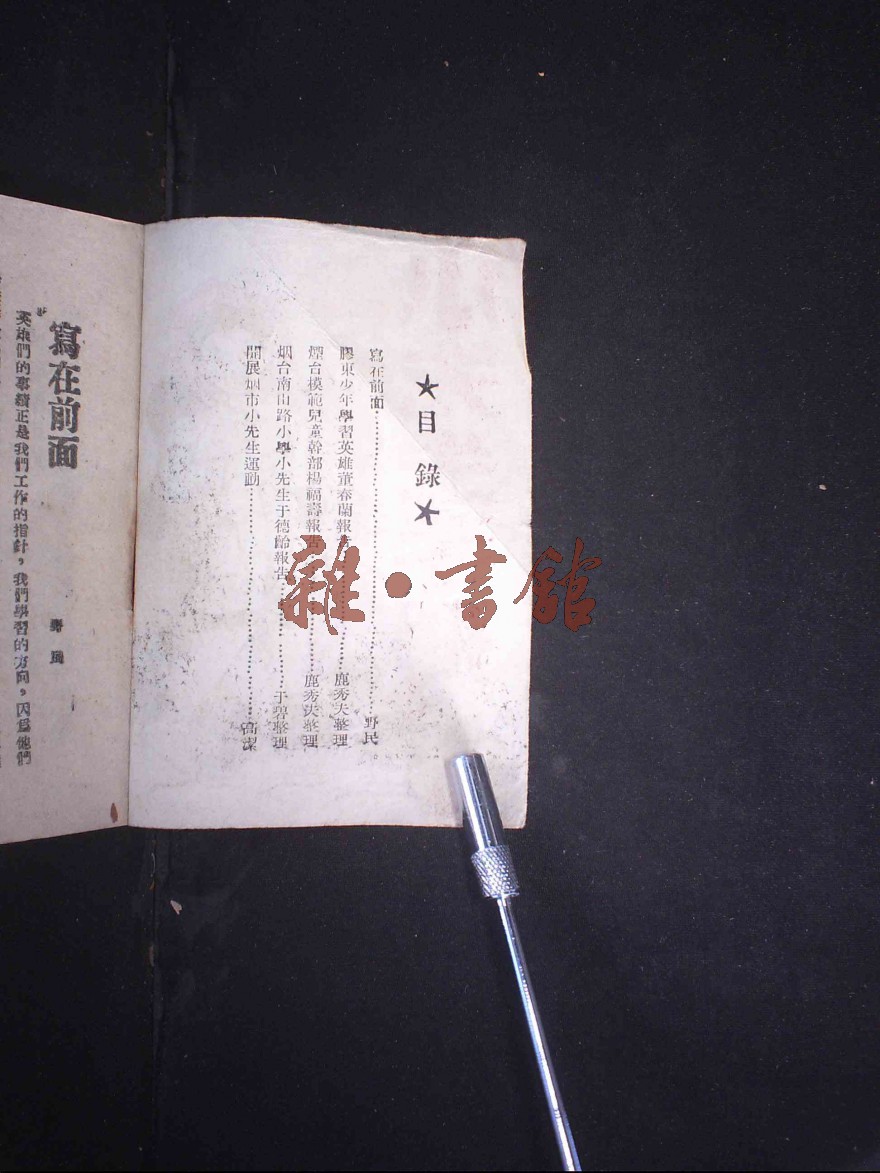 ★目錄★
寫在前面……野民
膠東少年學習英雄董春蘭報告……鹿秀夫整理
煙台模範兒童幹部楊福壽報告……鹿秀夫整理
烟台南山路小學小先生于德齡報告……于碧整理
開展烟市小先生運動……高潔
寫在前面
野民
英雄們的事績正是我們工作的指針，我們學習的方向，因爲他們
雜·書館